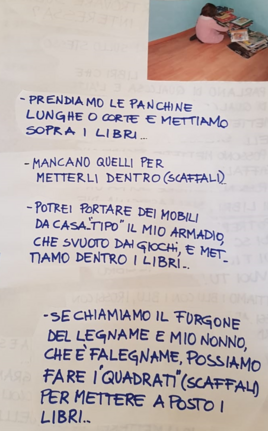 - PRENDIAMO LE PANCHINE
LUNGHE O CORTE E METTIAMO
SOPRA I LIBRI...
- MANCANO QUELLI PER
METTERLI DENTRO (SCAFFALI).
- POTREI PORTARE DEI MOBILI
DA CASA "TIPO" IL MIO ARMADIO,
CHE SVUOTO DAI GIOCHI, E MET-
TIAMO DENTRO I LIBRI...
- SE CHIAMIAMO IL FURGONE
DEL LEGNAME E MIO NONNO,
CHE È FALEGNAME, POSSIAMO
FARE I "QUADRATI" (SCAFFALI)
PER METTERE A POSTO I
LIBRI...